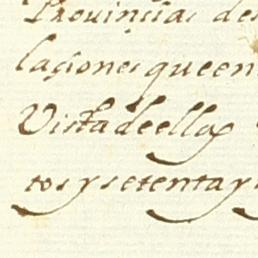 Prouinçias de
laçiones que en
Vista de ellas
tos y setenta y